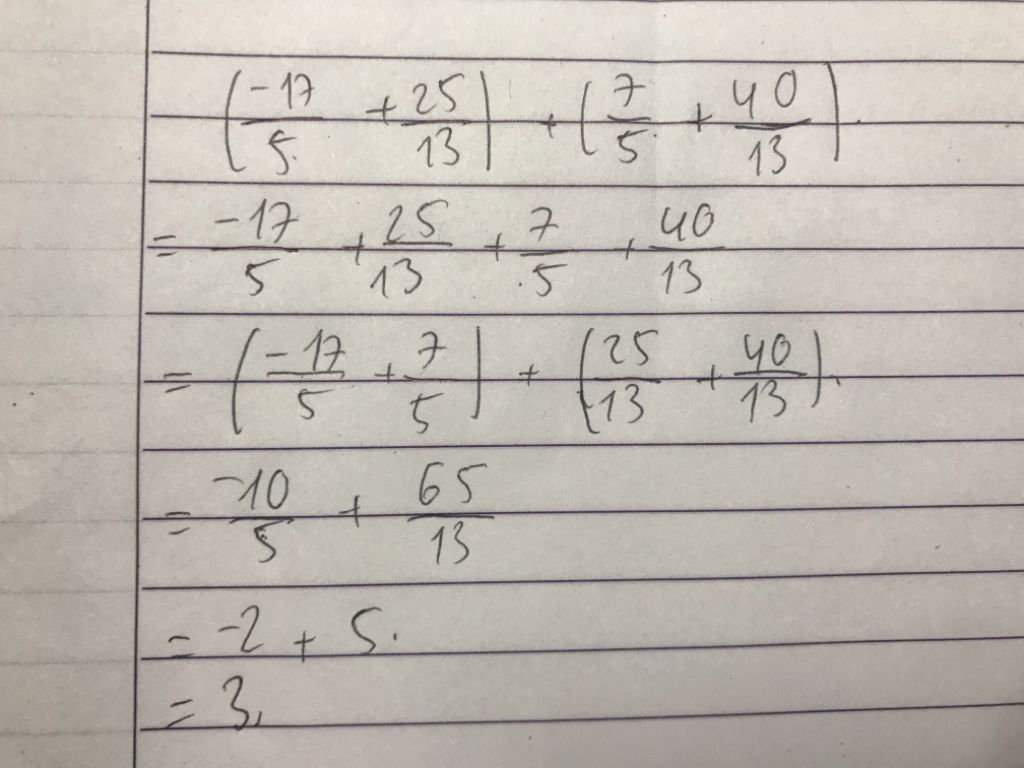 (-17/5 + 25/13) + (7/5 + 40/13)
= -17/5 + 25/13 + 7/5 + 40/13
= (-17/5 + 7/5) + (25/13 + 40/13).
= -10/5 + 65/13
= -2 + 5.
= 3,